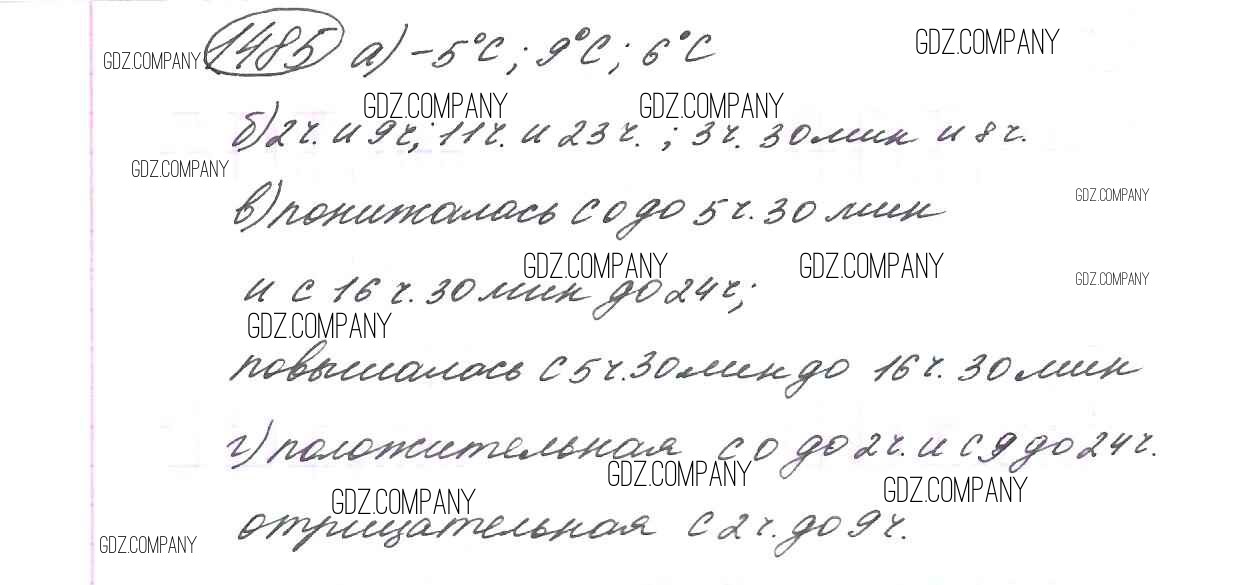 GDZ.COMPANY 1485 а) −5°С; 9°С; 6°С GDZ.COMPANY
GDZ.COMPANY GDZ.COMPANY
б) 2ч. и 9ч; 11ч. и 23ч. ; 3ч. 30мин и 8ч.
GDZ.COMPANY
в) понижалась с 0 до 5ч. 30 мин GDZ.COMPANY
GDZ.COMPANY GDZ.COMPANY
и с 16 ч. 30 мин до 24ч; GDZ.COMPANY
GDZ.COMPANY
повышалась с 5ч. 30мин до 16ч. 30 мин
г) положительная с 0 до 2ч. и с 9 до 24ч.
GDZ.COMPANY GDZ.COMPANY GDZ.COMPANY
отрицательная с 2ч. до 9ч.
GDZ.COMPANY